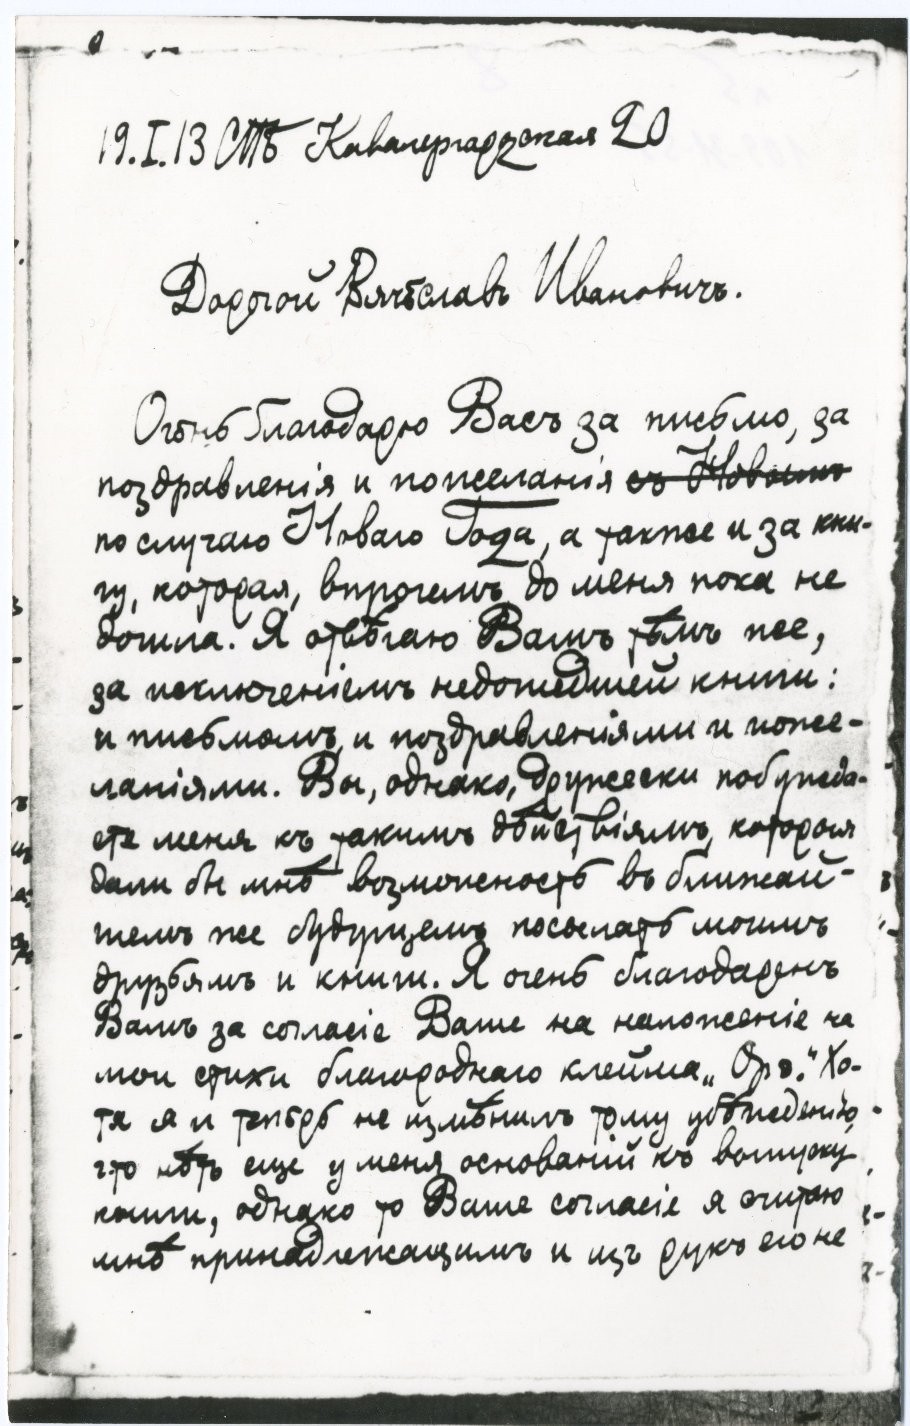 19.I.13 СПБ Кавалергардская 20
Дорогой Вячеславъ Ивановичъ.
Очень благодарю Васъ за письмо, за
поздравленія и пожеланія съ Новымъ
по случаю Новаго Года, а также и за кни-
гу, которая, впрочемъ, до меня пока не
дошла. Я отвѣчаю Вамъ тѣмъ же,
за исключеніемъ недошедшей книги:
и письмомъ, и поздравленіями и поже-
ланіями. Вы, однако, дружески побужда-
ете меня къ такимъ дѣйствіямъ, которыя
дали бы мнѣ возможность въ ближай-
шемъ же будущемъ посылать моимъ
друзьямъ и книги. Я очень благодаренъ
Вамъ за согласіе Ваше на наложеніе на
мои стихи благороднаго клейма „Оръ.“ Хо-
тя я и теперь не измѣнилъ тому убѣжденію,
что нѣтъ еще у меня основаній къ выпуску
книги, однако то Ваше согласіе я считаю
мнѣ принадлежащимъ и изъ рукъ его не